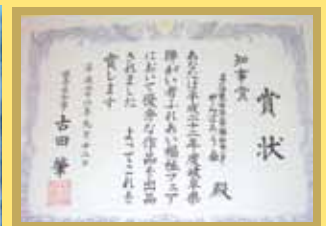 賞状
知事賞
殿
あなたは平成二十二年度岐阜県
障がい者ふれあい福祉フェア
において優秀な作品を出品
されました よってこれを
賞します
岐阜県知事 古田 肇